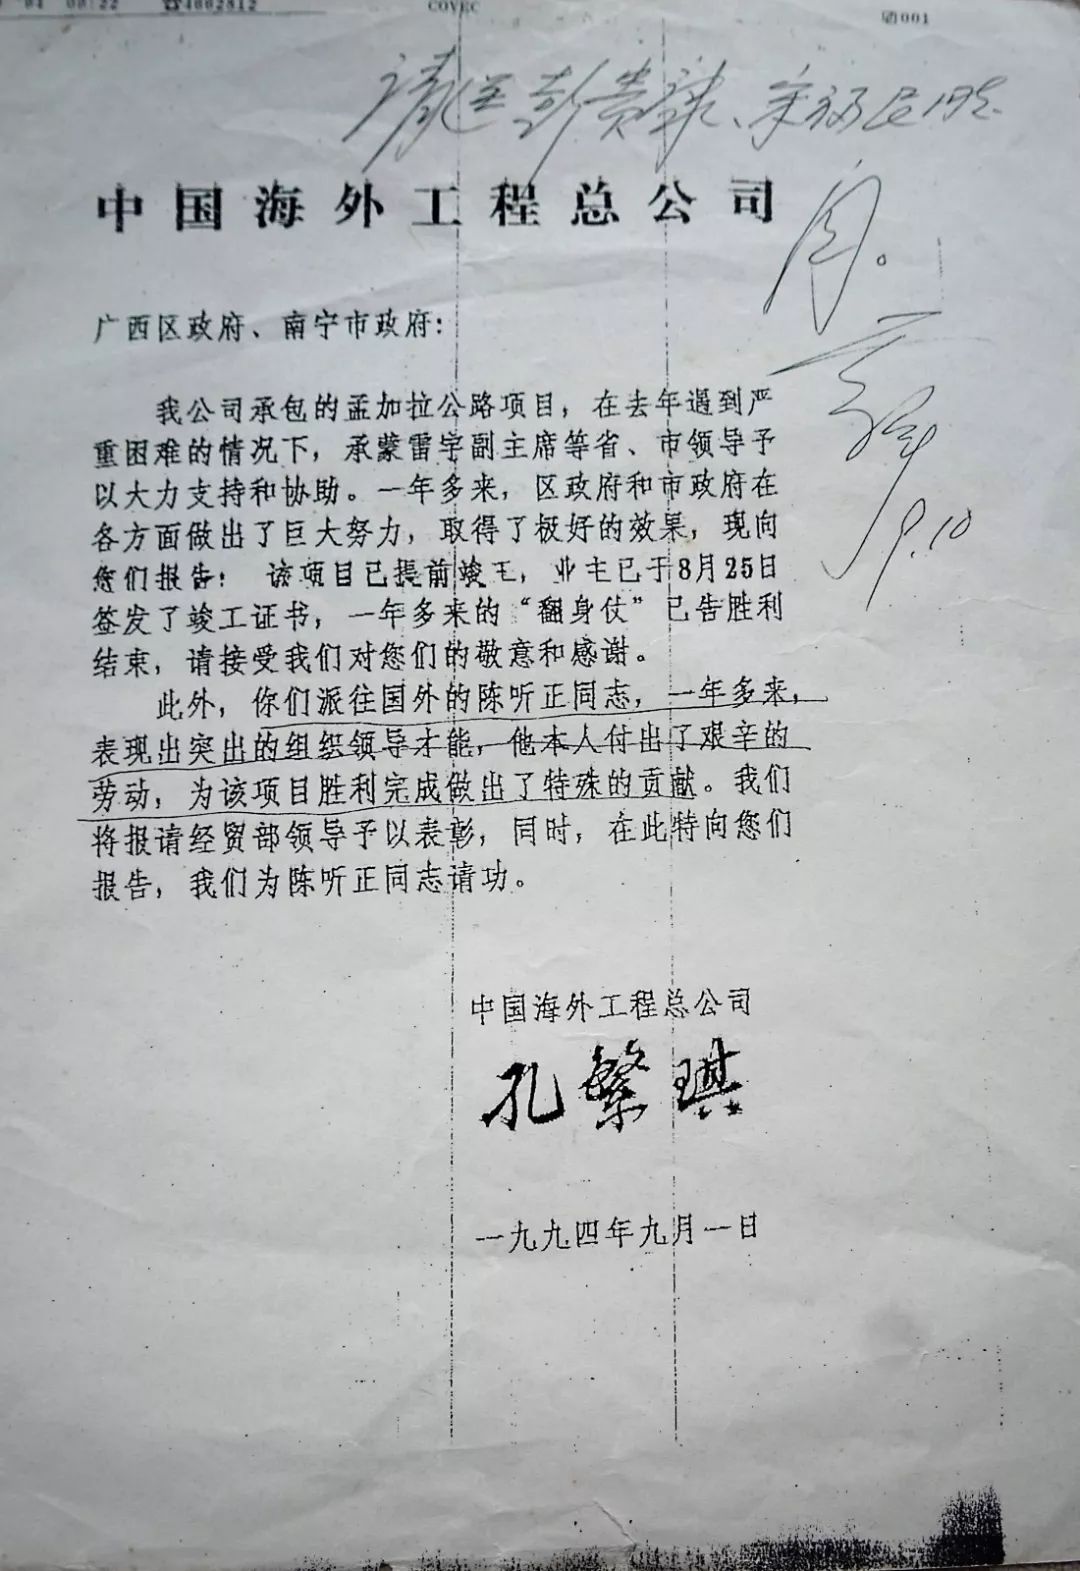 04 08:22 ☎4002812 COVEC 001
请送彭贵康、宋福民同志
中国海外工程总公司
阅。
广西区政府、南宁市政府：
我公司承包的孟加拉公路项目，在去年遇到严
重困难的情况下，承蒙雷宇副主席等省、市领导予
以大力支持和协助。一年多来，区政府和市政府在
各方面做出了巨大努力，取得了极好的效果，现向
您们报告： 该项目已提前竣工，业主已于8月25日
签发了竣工证书，一年多来的“翻身仗”已告胜利
结束，请接受我们对您们的敬意和感谢。
9.10
此外，你们派往国外的陈听正同志，一年多来，
表现出突出的组织领导才能，他本人付出了艰辛的
劳动，为该项目胜利完成做出了特殊的贡献。我们
将报请经贸部领导予以表彰，同时，在此特向您们
报告，我们为陈听正同志请功。
中国海外工程总公司
孔繁琪
一九九四年九月一日